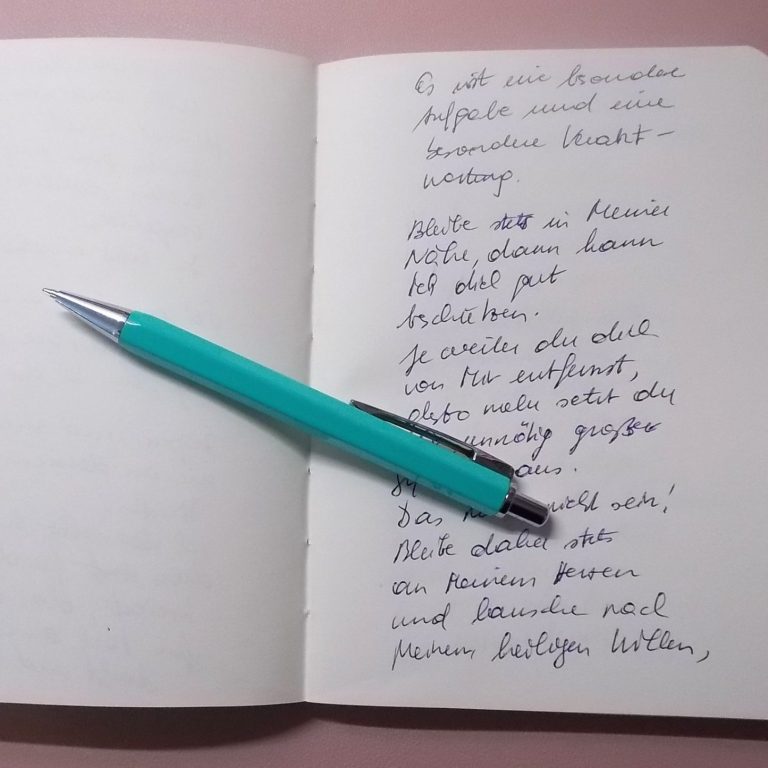 Es ist eine besondere
Aufgabe und eine
besondere Verant-
wortung.
Bleibe stets in Meiner
Nähe, dann kann
Ich dich gut
beschützen.
Je weiter du dich
von Mir entfernst,
desto mehr setzt du
unnötig großer
aus.
Das nicht sein!
Bleibe daher stets
an Meinem Herzen
und lausche nach
Meinem heiligen Willen,